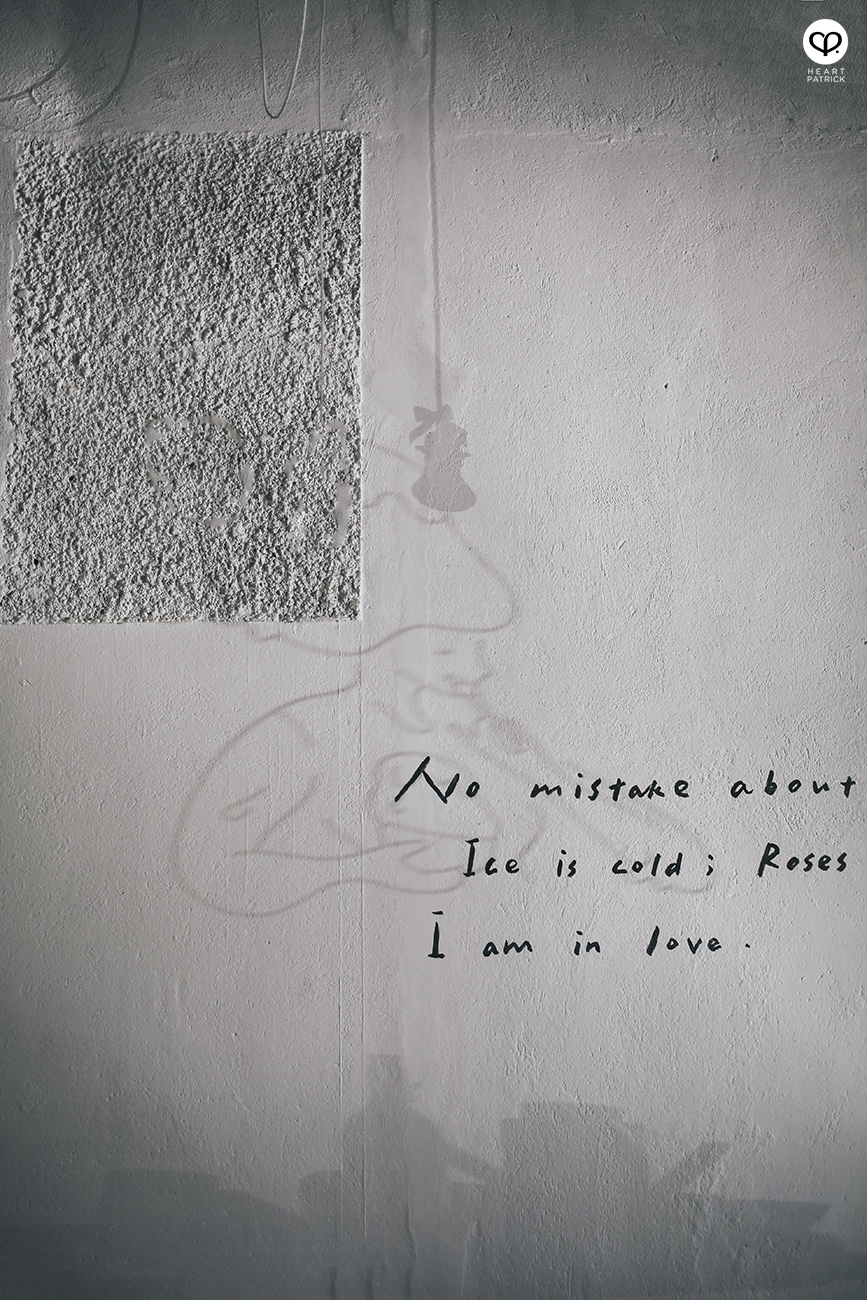 HEART
PATRICK
No mistake about
Ice is cold; Roses
I am in love.